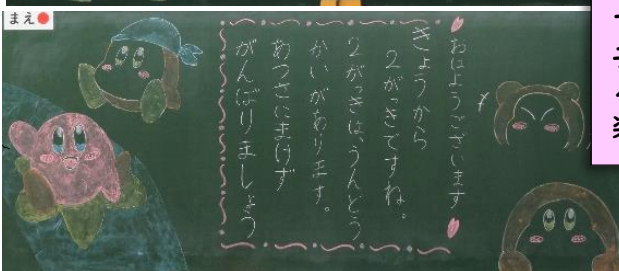 まえ
おはようございます
きょうから
２がっきですね。
２がっきは、うんどう
かいがあります。
あつさにまけず
がんばりましょう